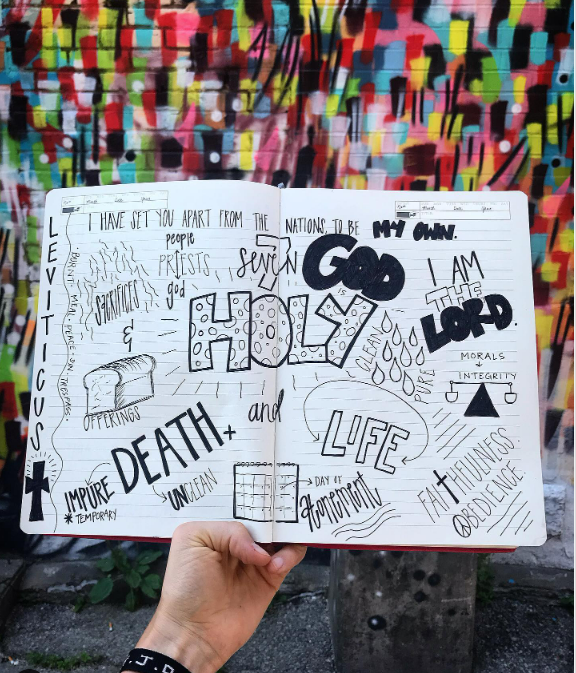 LEVITICUS
I HAVE SET YOU APART FROM THE NATIONS, TO BE MY OWN.
people
PRIESTS
god
SACRIFICES
&
OFFERINGS
7
seven
GOD
IS
HOLY
and
I AM
THE
LORD.
CLEAN
PURE
MORALS
INTEGRITY
DEATH +
LIFE
IMPURE
* TEMPORARY
UNCLEAN
DAY OF
Atonement
FAITHFULNESS
OBEDIENCE
J.D